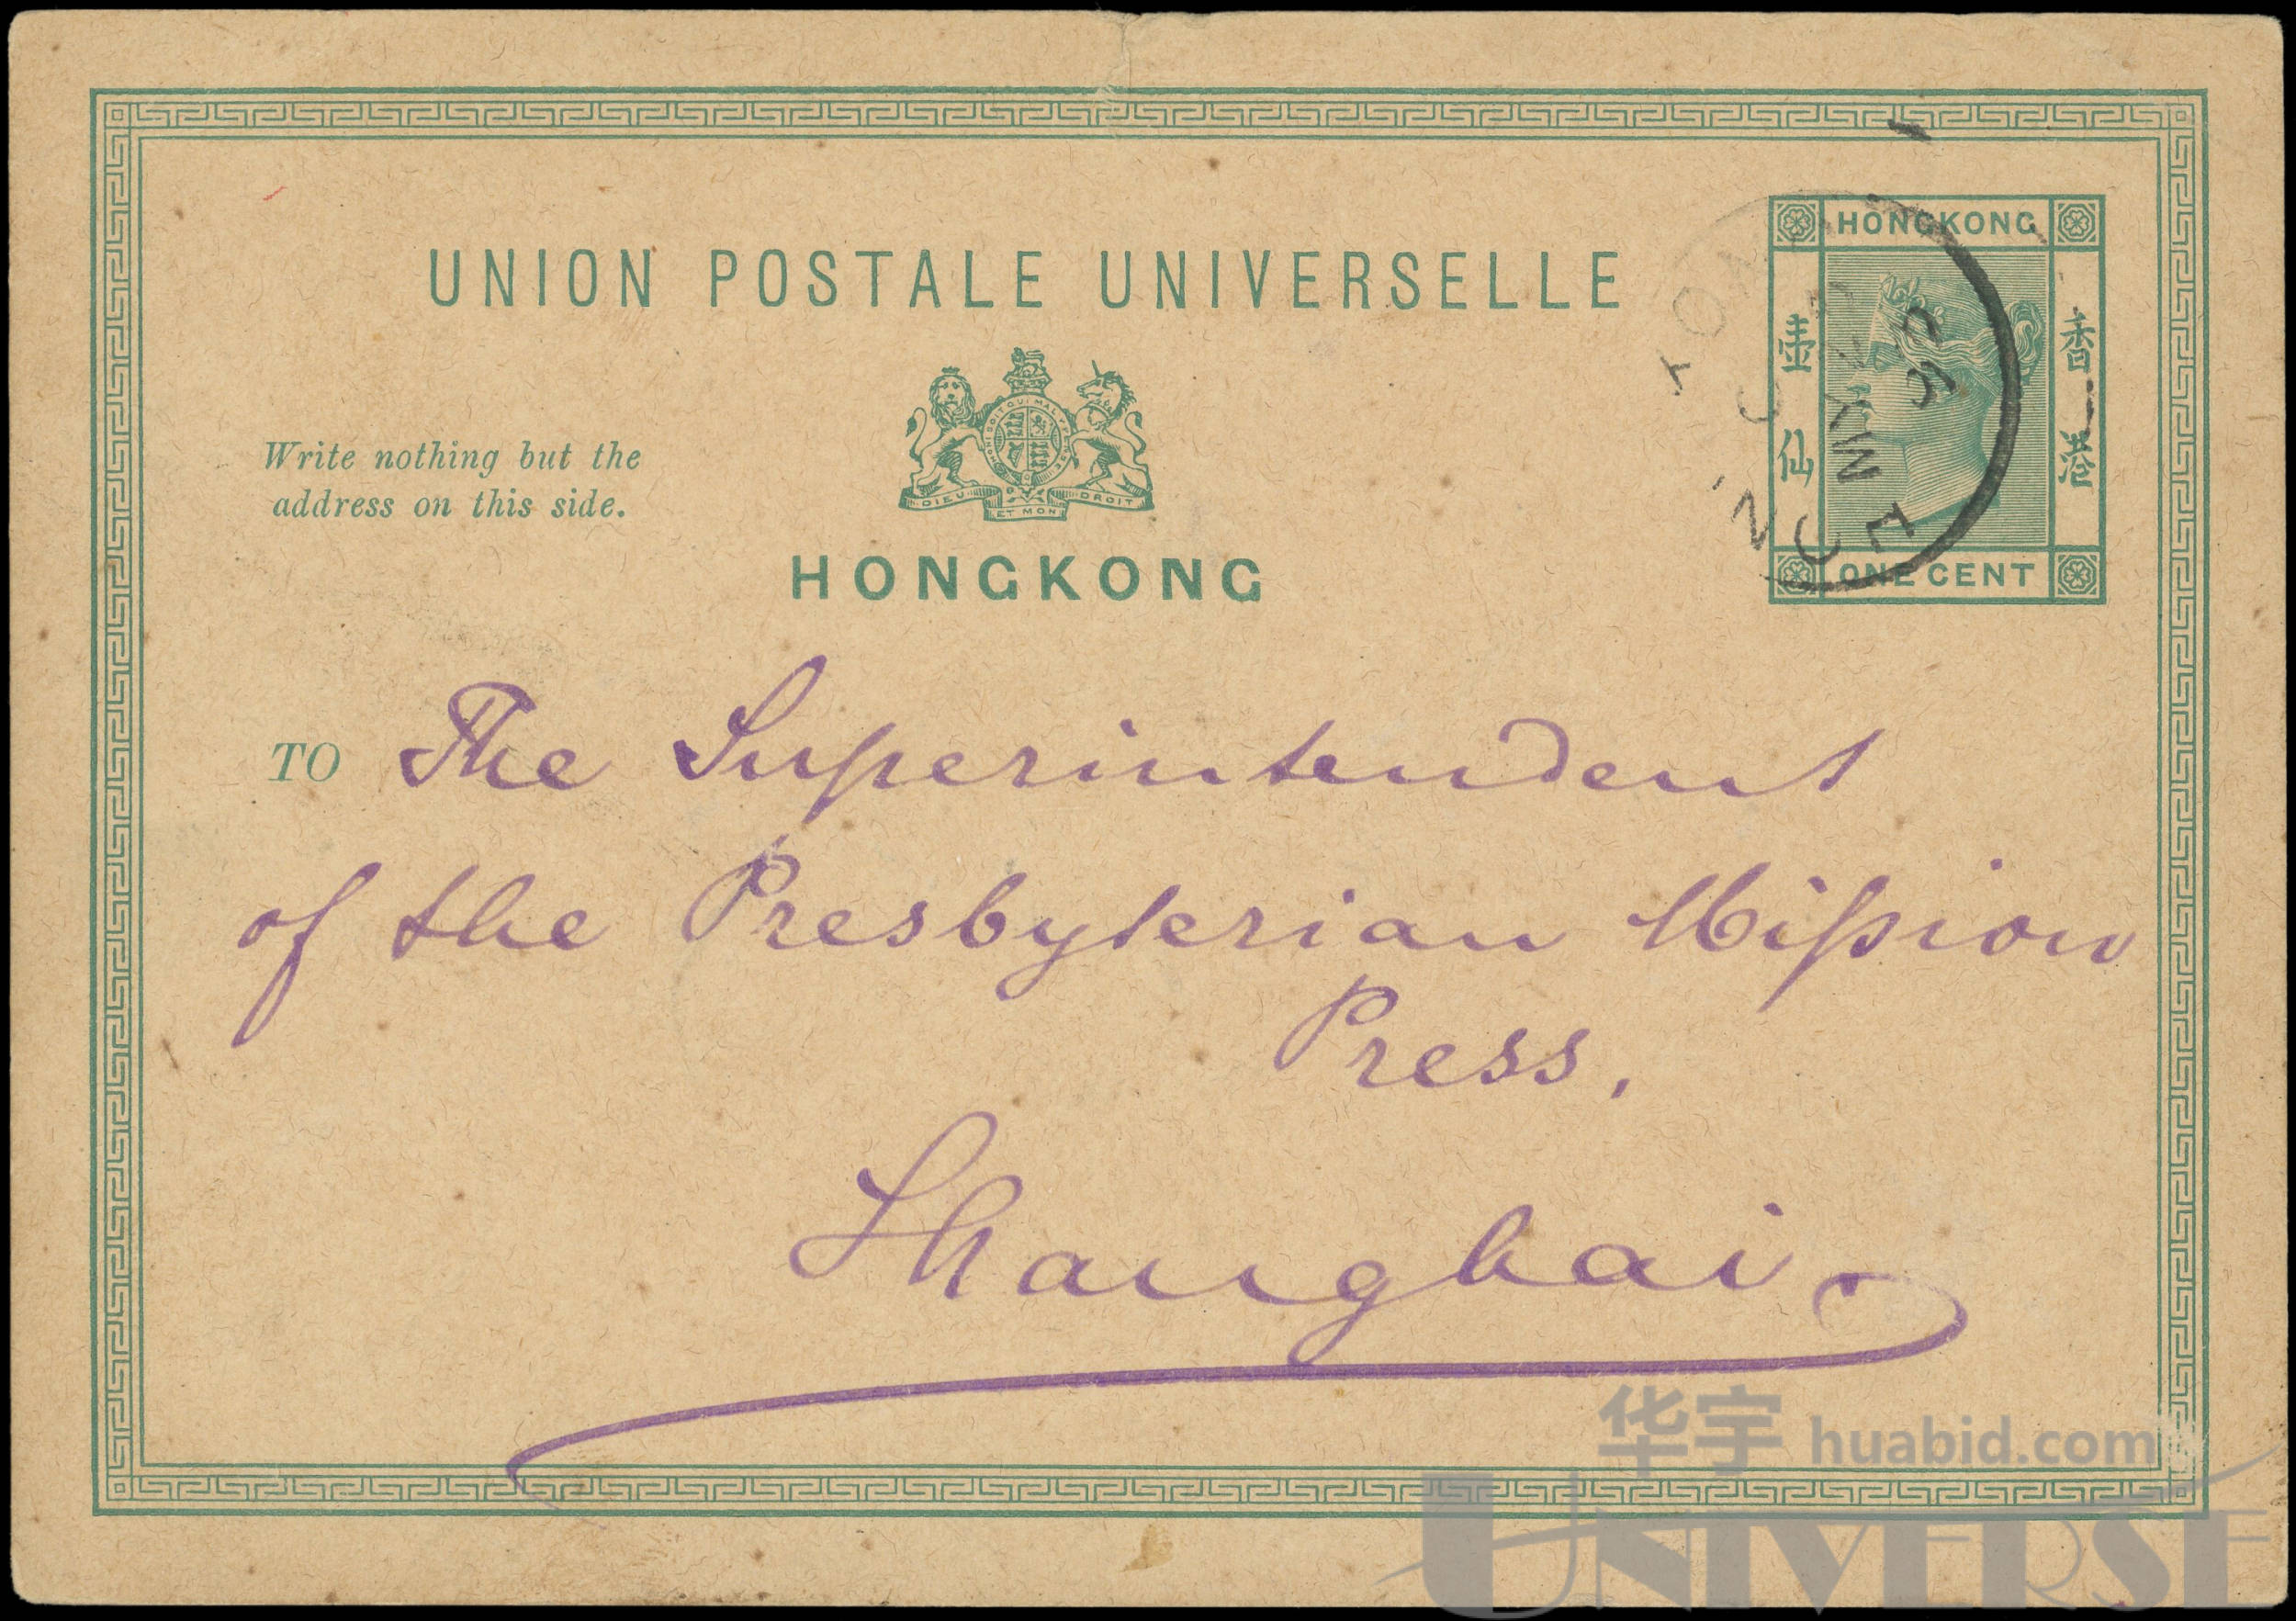 UNION POSTALE UNIVERSELLE
HONI SOIT QUI MAL Y PENSE
DIEU ET MON DROIT
HONGKONG
Write nothing but the
address on this side.
HONGKONG
壹仙
香港
ONE CENT
TO The Superintendent
of the Presbyterian Mission
Press.
Shanghai
华宇 huabid.com
UNIVERSE